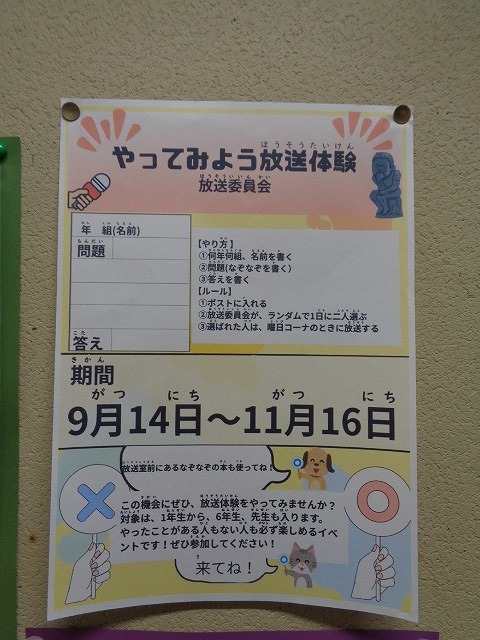 やってみよう放送体験
放送委員会
年 組(名前)
問題
答え
【やり方】
①何年何組、名前を書く
②問題(なぞなぞを書く)
③答えを書く
【ルール】
①ポストに入れる
②放送委員会が、ランダムで1日に二人選ぶ
③選ばれた人は、曜日コーナのときに放送する
期間
9月14日～11月16日
放送室前にあるなぞなぞの本も使ってね!
この機会にぜひ、放送体験をやってみませんか?
対象は、1年生から、6年生、先生も入ります。
やったことがある人もない人も必ず楽しめるイベ
ントです!ぜひ参加してください!
来てね!